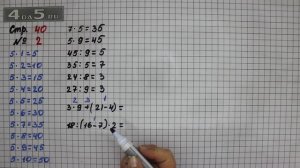 4a5.es
Стр. 40
№ 2
5·1=5
5·2=10
5·3=15
5·4=20
5·5=25
5·6=30
5·7=35
5·8=40
5·9=45
5·10=50
7·5=35
5·9=45
45:9=5
35:5=7
24:8=3
27:9=3
2 3 1
3·9+(21-4)=
1
18:(16-7)·2=